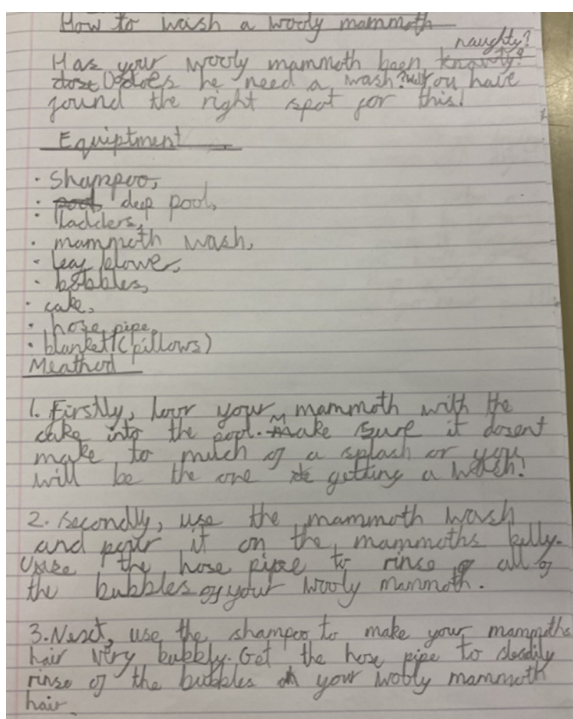 How to wash a wooly mammoth
naughty?
Has your wooly mammoth been knawty?
dose Does he need a wash? well you have
found the right spot for this!
Equiptment
· Shampoo,
· pool deep pool,
· ladders,
· mammoth wash,
· leaf blower,
· bobbles,
· cake,
· hose pipe,
· blanket (pillows)
Meathod
1. Firstly, lour your mammoth with the
cake into the pool. make sure it dosent
make to much of a splash or you
will be the one getting a wash!
2. Secondly, use the mammoth wash
and pour it on the mammoths belly.
Use the hose pipe to rinse all of
the bubbles of your wooly mammoth.
3. Next, use the shampoo to make your mammoths
hair very bubbly. Get the hose pipe to steadily
rinse of the bubbles on your wooly mammoth
hair.